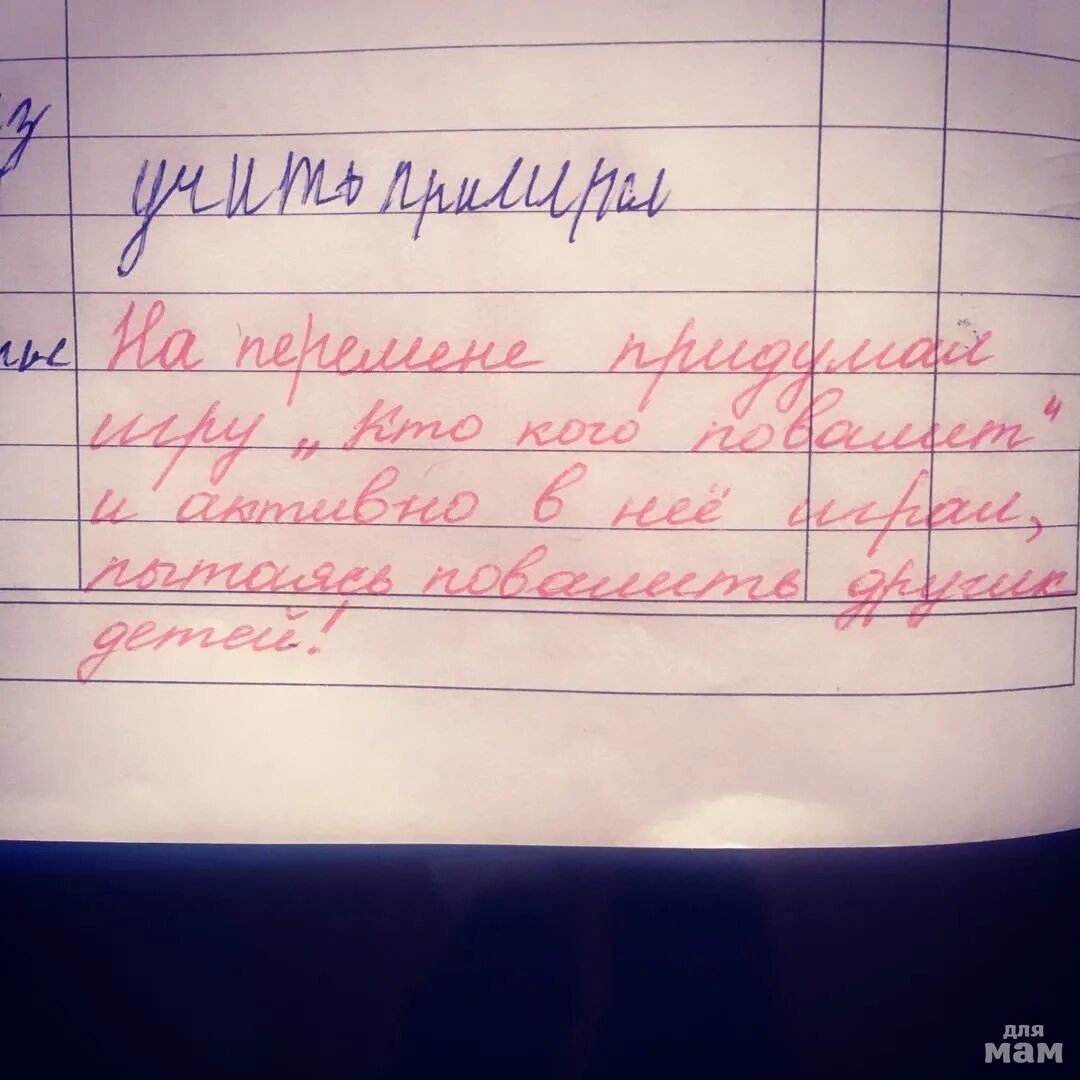 з
учить примеры
На перемене придумал
игру „Кто кого повалит“
и активно в неё играл,
пытаясь повалить других
детей!
для
мам